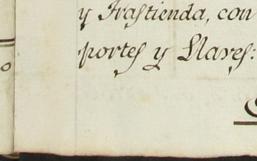 y Trastienda, con
portes y Llaves: